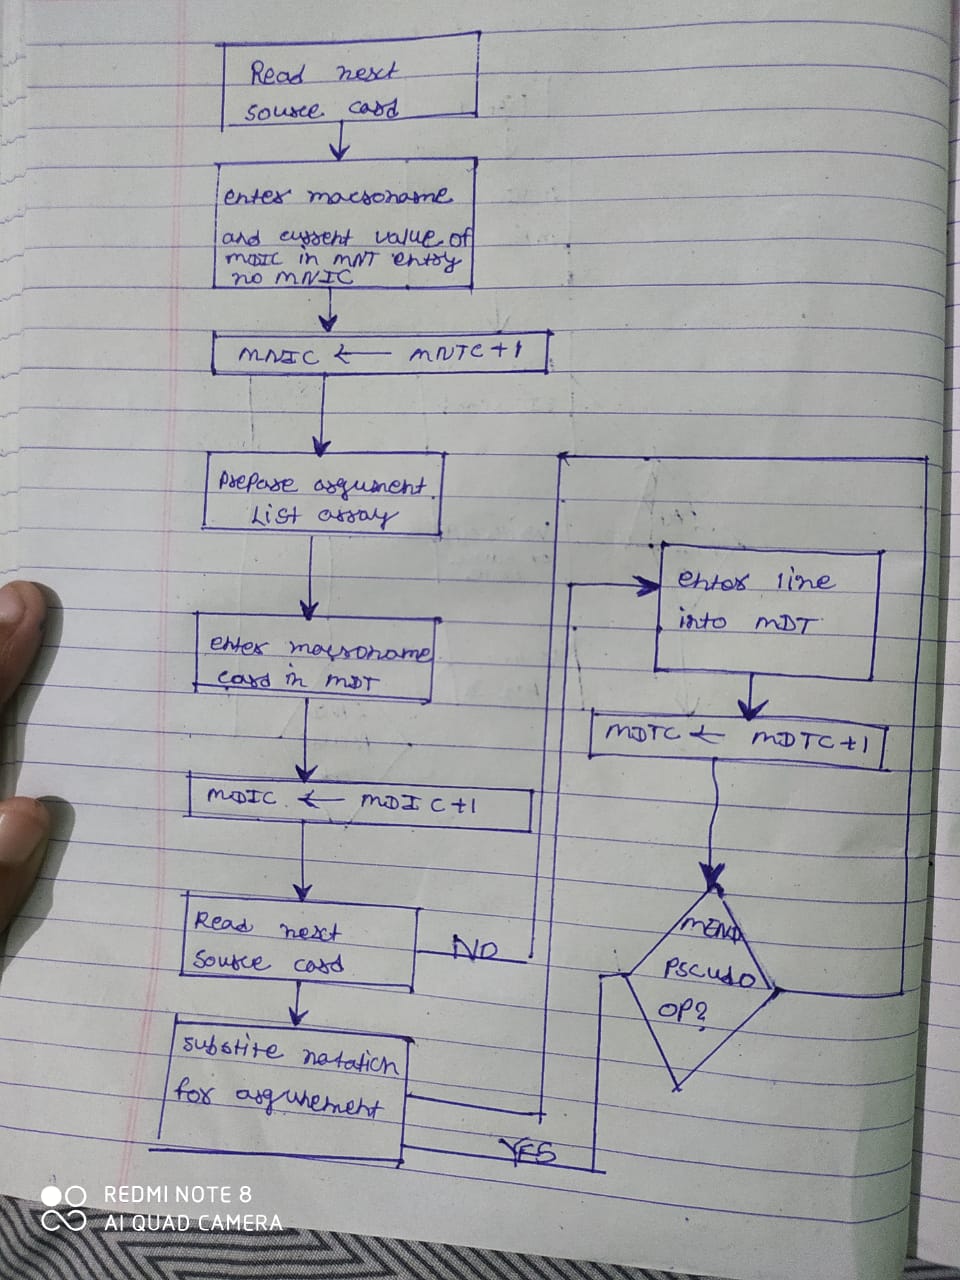 Read next
source card
enter macroname
and current value of
MDIC in MNT entry
no MNIC
MNIC ← MNTC+1
Prepare argument
List array
enter macroname
card in MDT
MDIC ← MDIC+1
Read next
source card
NO
substite notation
for argunement
YES
enter line
into MDT
MDTC ← MDTC+1
MEND
PSCUDO
OP?
REDMI NOTE 8
AI QUAD CAMERA